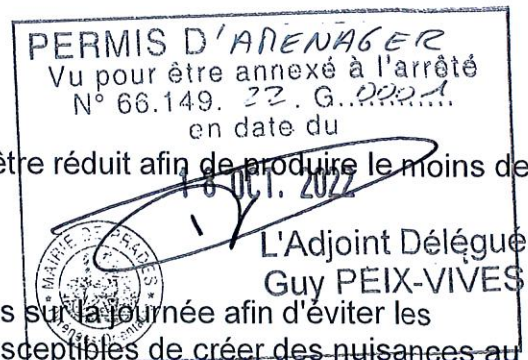 PERMIS D'AMENAGER
Vu pour être annexé à l'arrêté
N° 66.149. 22. G..0001....
en date du
être réduit afin de produire le moins de
18 OCT. 2022
L'Adjoint Délégué
Guy PEIX-VIVES
MAIRIE DE PRADES
s sur la journée afin d'éviter les
sceptibles de créer des nuisances au